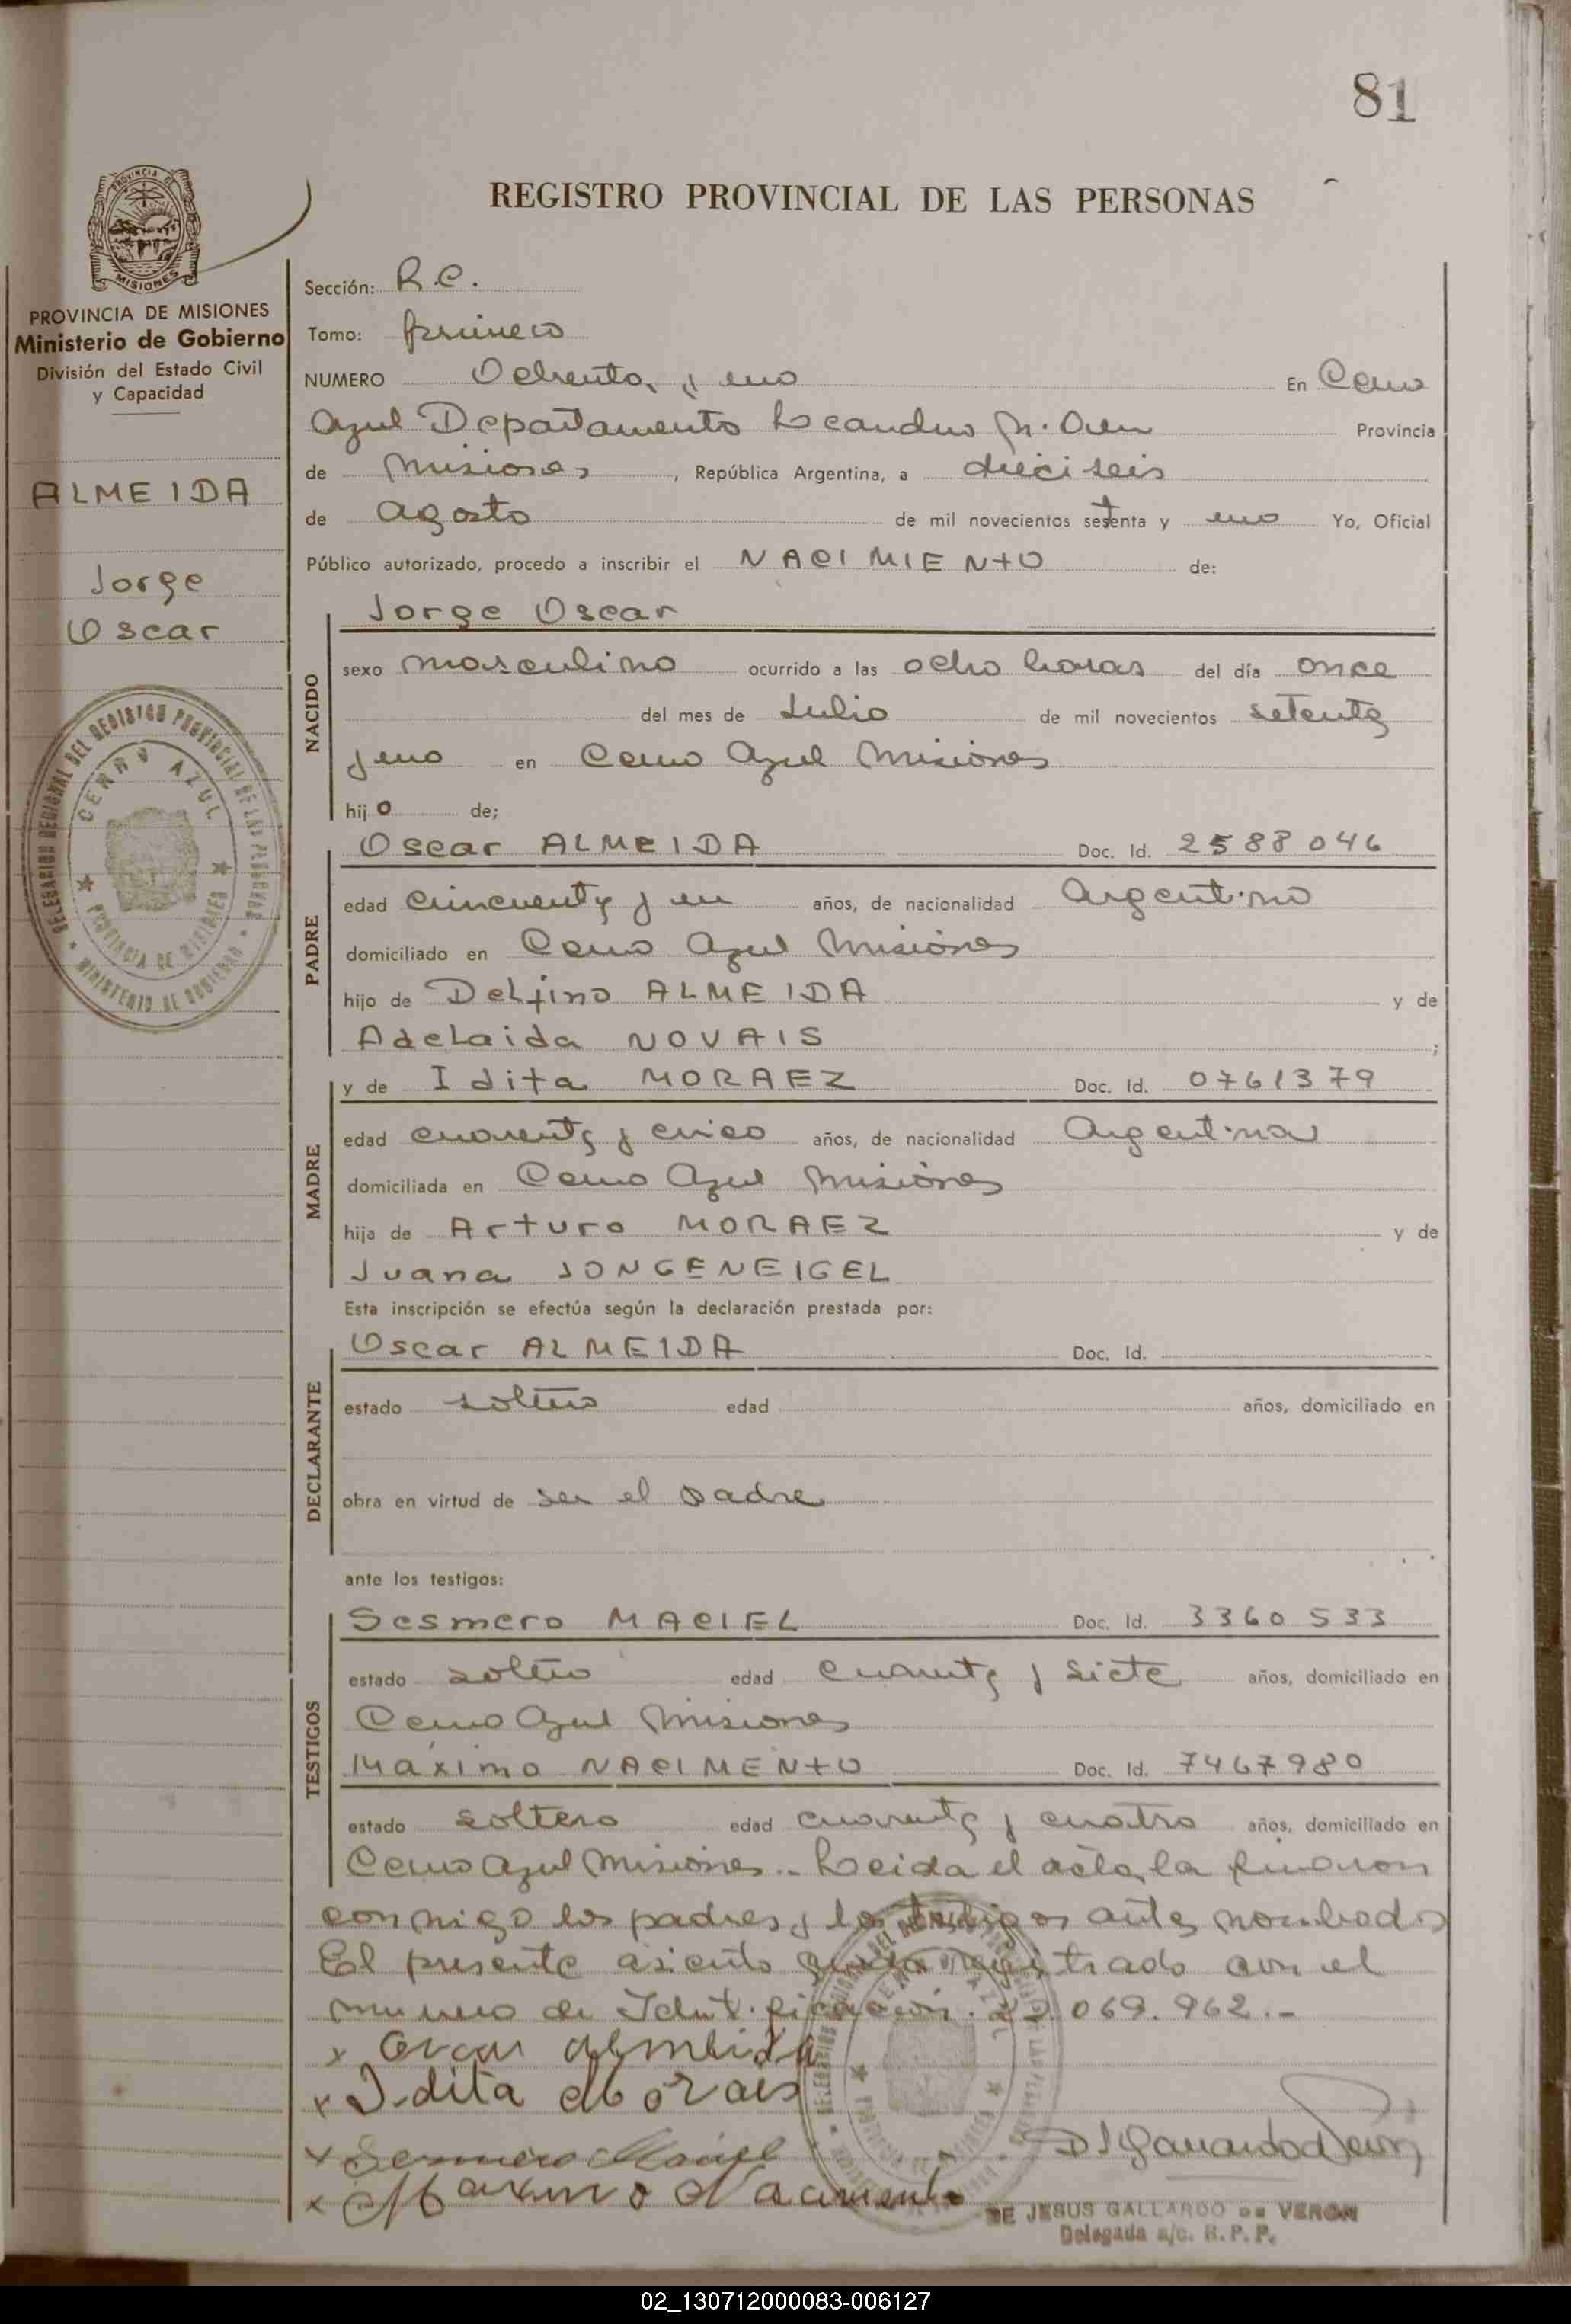 81
PROVINCIA DE MISIONES
REGISTRO PROVINCIAL DE LAS PERSONAS
PROVINCIA DE MISIONES
Ministerio de Gobierno
División del Estado Civil
y Capacidad
ALMEIDA
Jorge
Oscar
DELEGACION REGIONAL DEL REGISTRO PROVINCIAL DE LAS PERSONAS
CERRO AZUL
PROVINCIA DE MISIONES
MINISTERIO DE GOBIERNO
Sección: R.C.
Tomo: primero
NUMERO Ochenta y uno En Cerro
Azul Departamento Leandro N. Alem Provincia
de Misiones, República Argentina, a dieciseis
de Agosto de mil novecientos setenta y uno Yo, Oficial
Público autorizado, procedo a inscribir el NACIMIENTO de:
NACIDO
Jorge Oscar
sexo masculino ocurrido a las ocho horas del día once
del mes de Julio de mil novecientos setenta
y uno en Cerro Azul Misiones
hijo de;
PADRE
Oscar ALMEIDA Doc. Id. 2588046
edad cincuenta y un años, de nacionalidad Argentino
domiciliado en Cerro Azul Misiones
hijo de Delfino ALMEIDA y de
Adelaida NOVAIS ;
MADRE
y de Idita MORAEZ Doc. Id. 0761379
edad cuarenta y cinco años, de nacionalidad Argentina
domiciliada en Cerro Azul Misiones
hija de Arturo MORAEZ y de
Juana JONGENEIGEL
Esta inscripción se efectúa según la declaración prestada por:
DECLARANTE
Oscar ALMEIDA Doc. Id.
estado soltero edad años, domiciliado en
obra en virtud de ser el padre
ante los testigos:
TESTIGOS
Sesmero MACIEL Doc. Id. 3360533
estado soltero edad cuarenta y siete años, domiciliado en
Cerro Azul Misiones
Máximo NACIMENTO Doc. Id. 7467980
estado soltero edad cuarenta y cuatro años, domiciliado en
Cerro Azul Misiones.. Leida el acta, la firmaron
conmigo los padres y los testigos antes nombrados
El presente asiento queda registrado con el
numero de Identificación. 22.069.962.-
x Oscar Almeida
x Idita Morais
x Sesmero Maciel
x Maximo Nacimento
DE JESUS GALLARDO DE VERON
Delegada a/c. R. P. P.
02_130712000083-006127